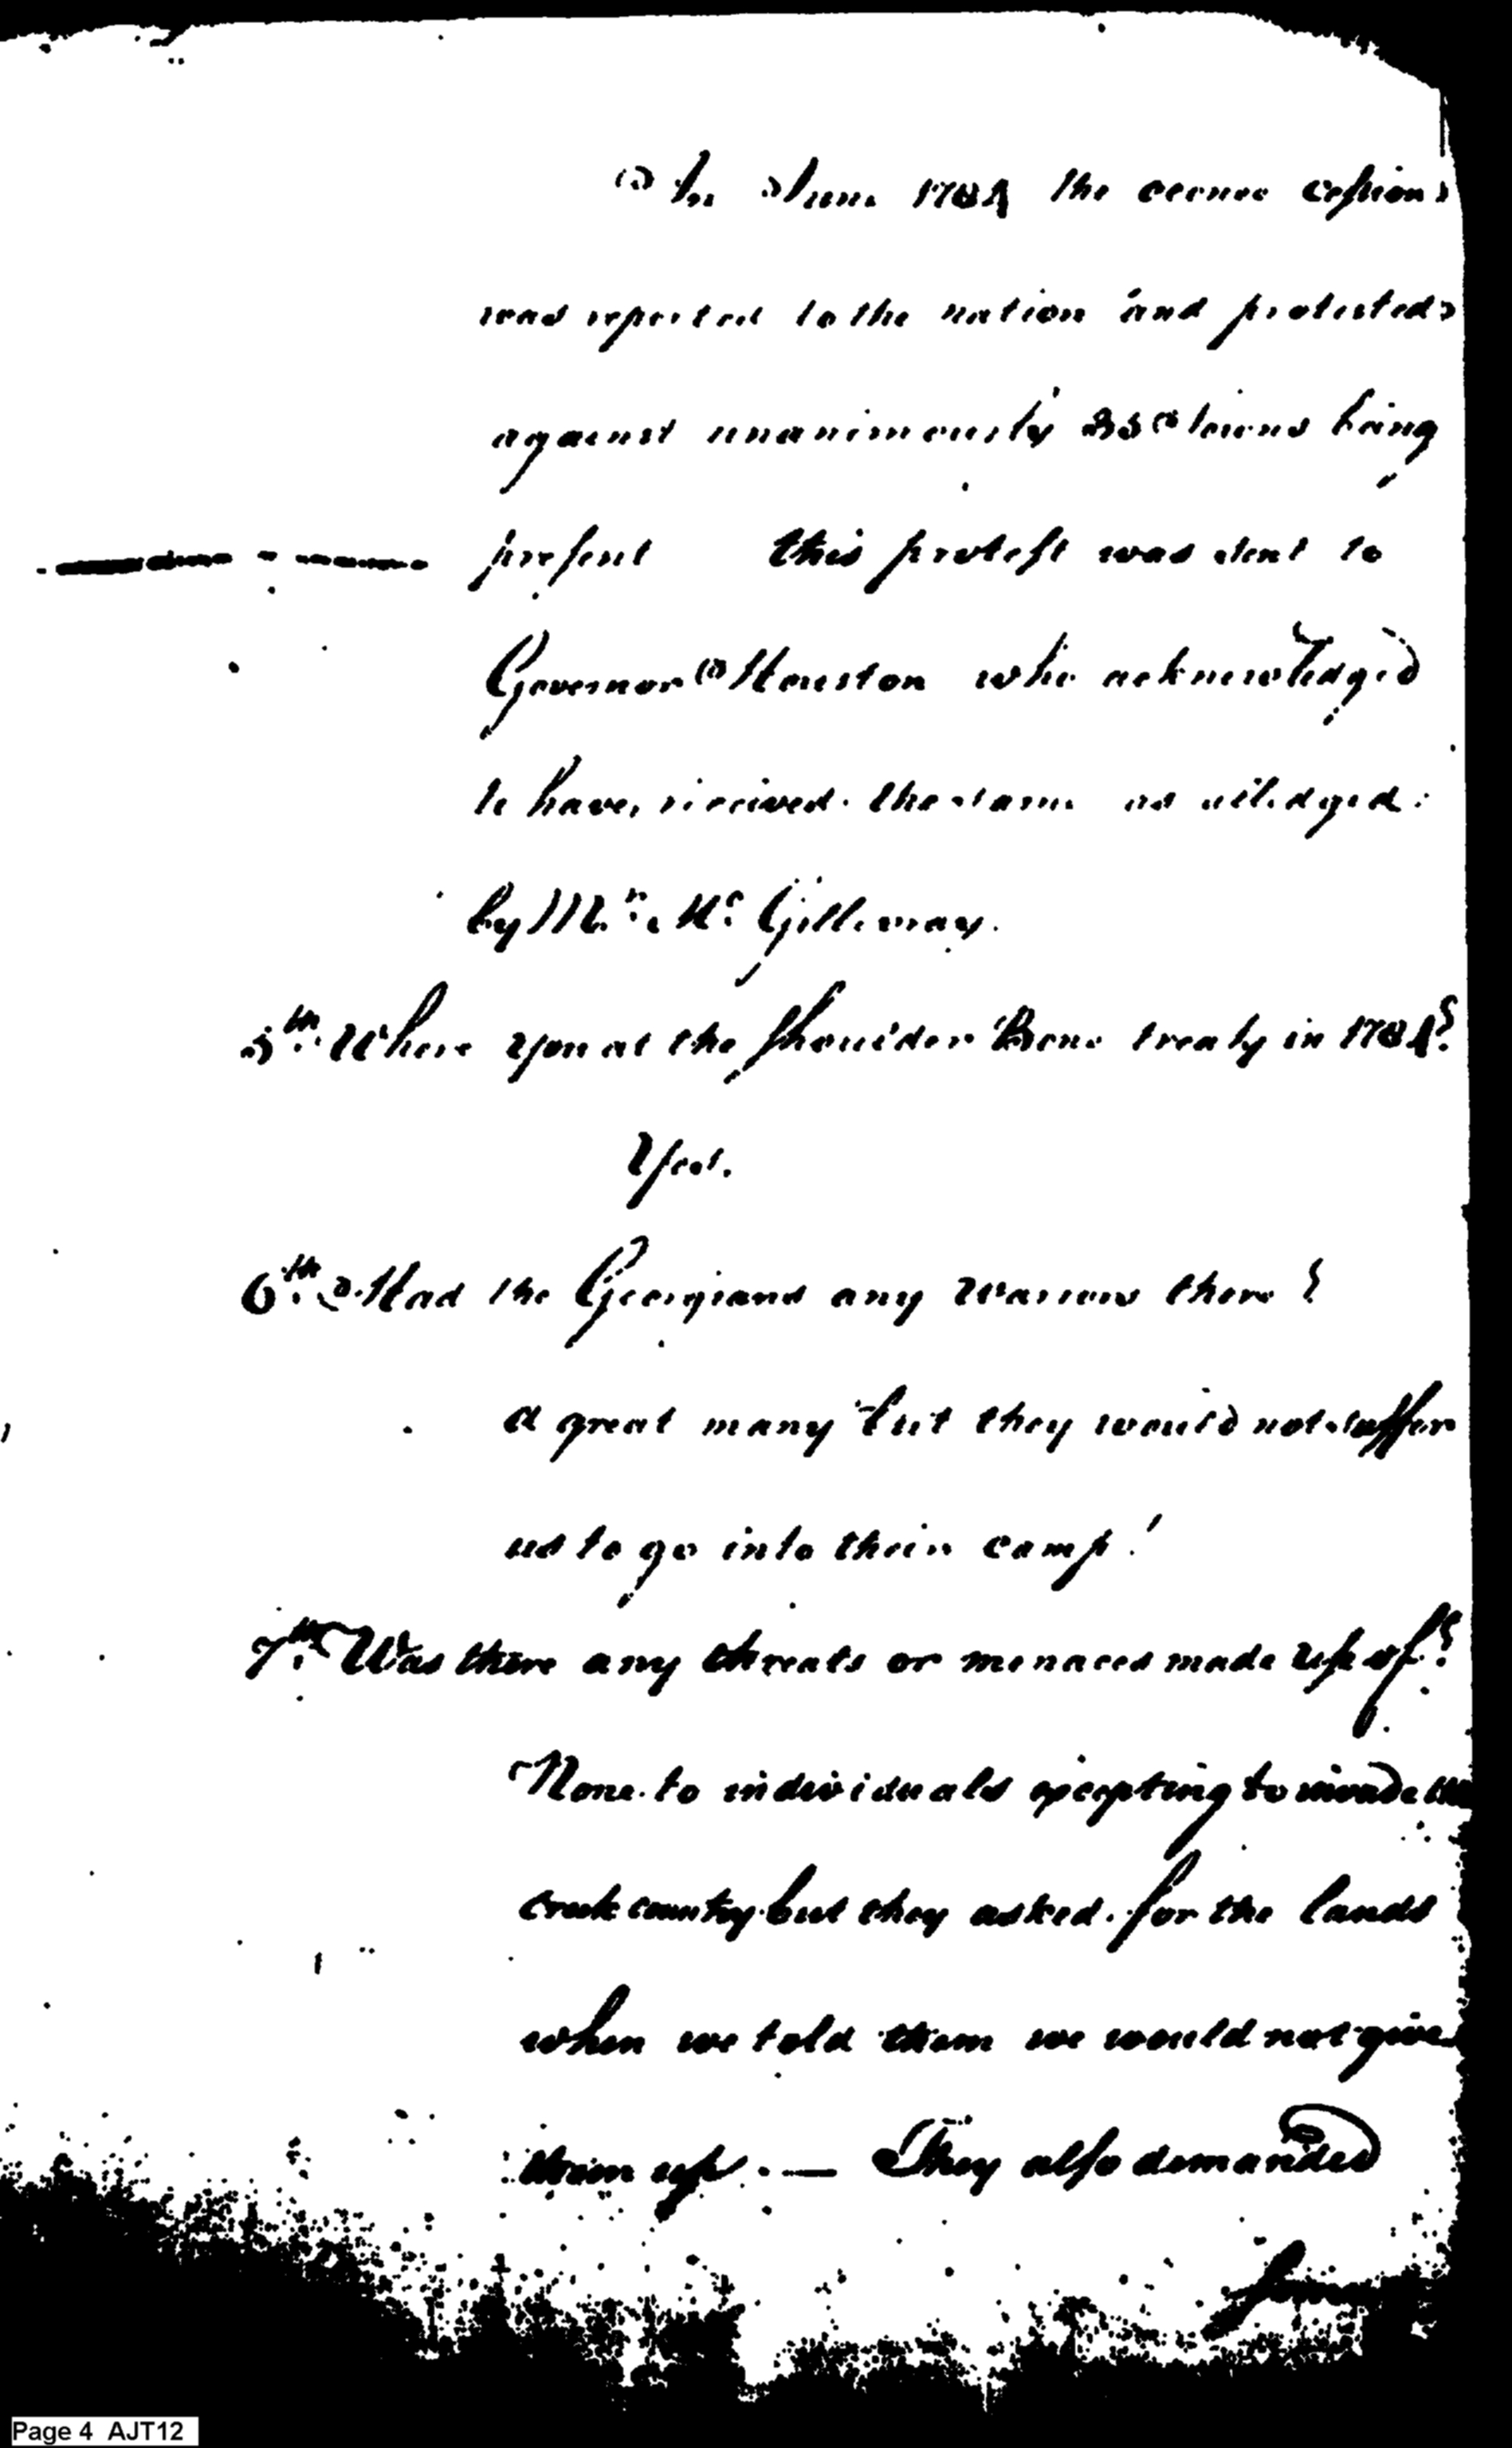 In June 1784 the oconee cession
was reported to the nation and protested
against unanimously 33 towns being
present this protest was sent to
Governor Houston who acknowledged
to have received the same as alledged
by Mr. Mc Gillivray.
5th. Where you at the Shoulder Bone treaty in 1784?
Yes.
6th. Had the Georgians any Warriors there?
A great many but they would not suffer
us to go into their camp!
7th. Was there any threats or menaces made use of?
None to individuals excepting to invade
creek country but they asked for the lands
when we told them we would not give
them up. — They also demanded
Page 4 AJT12